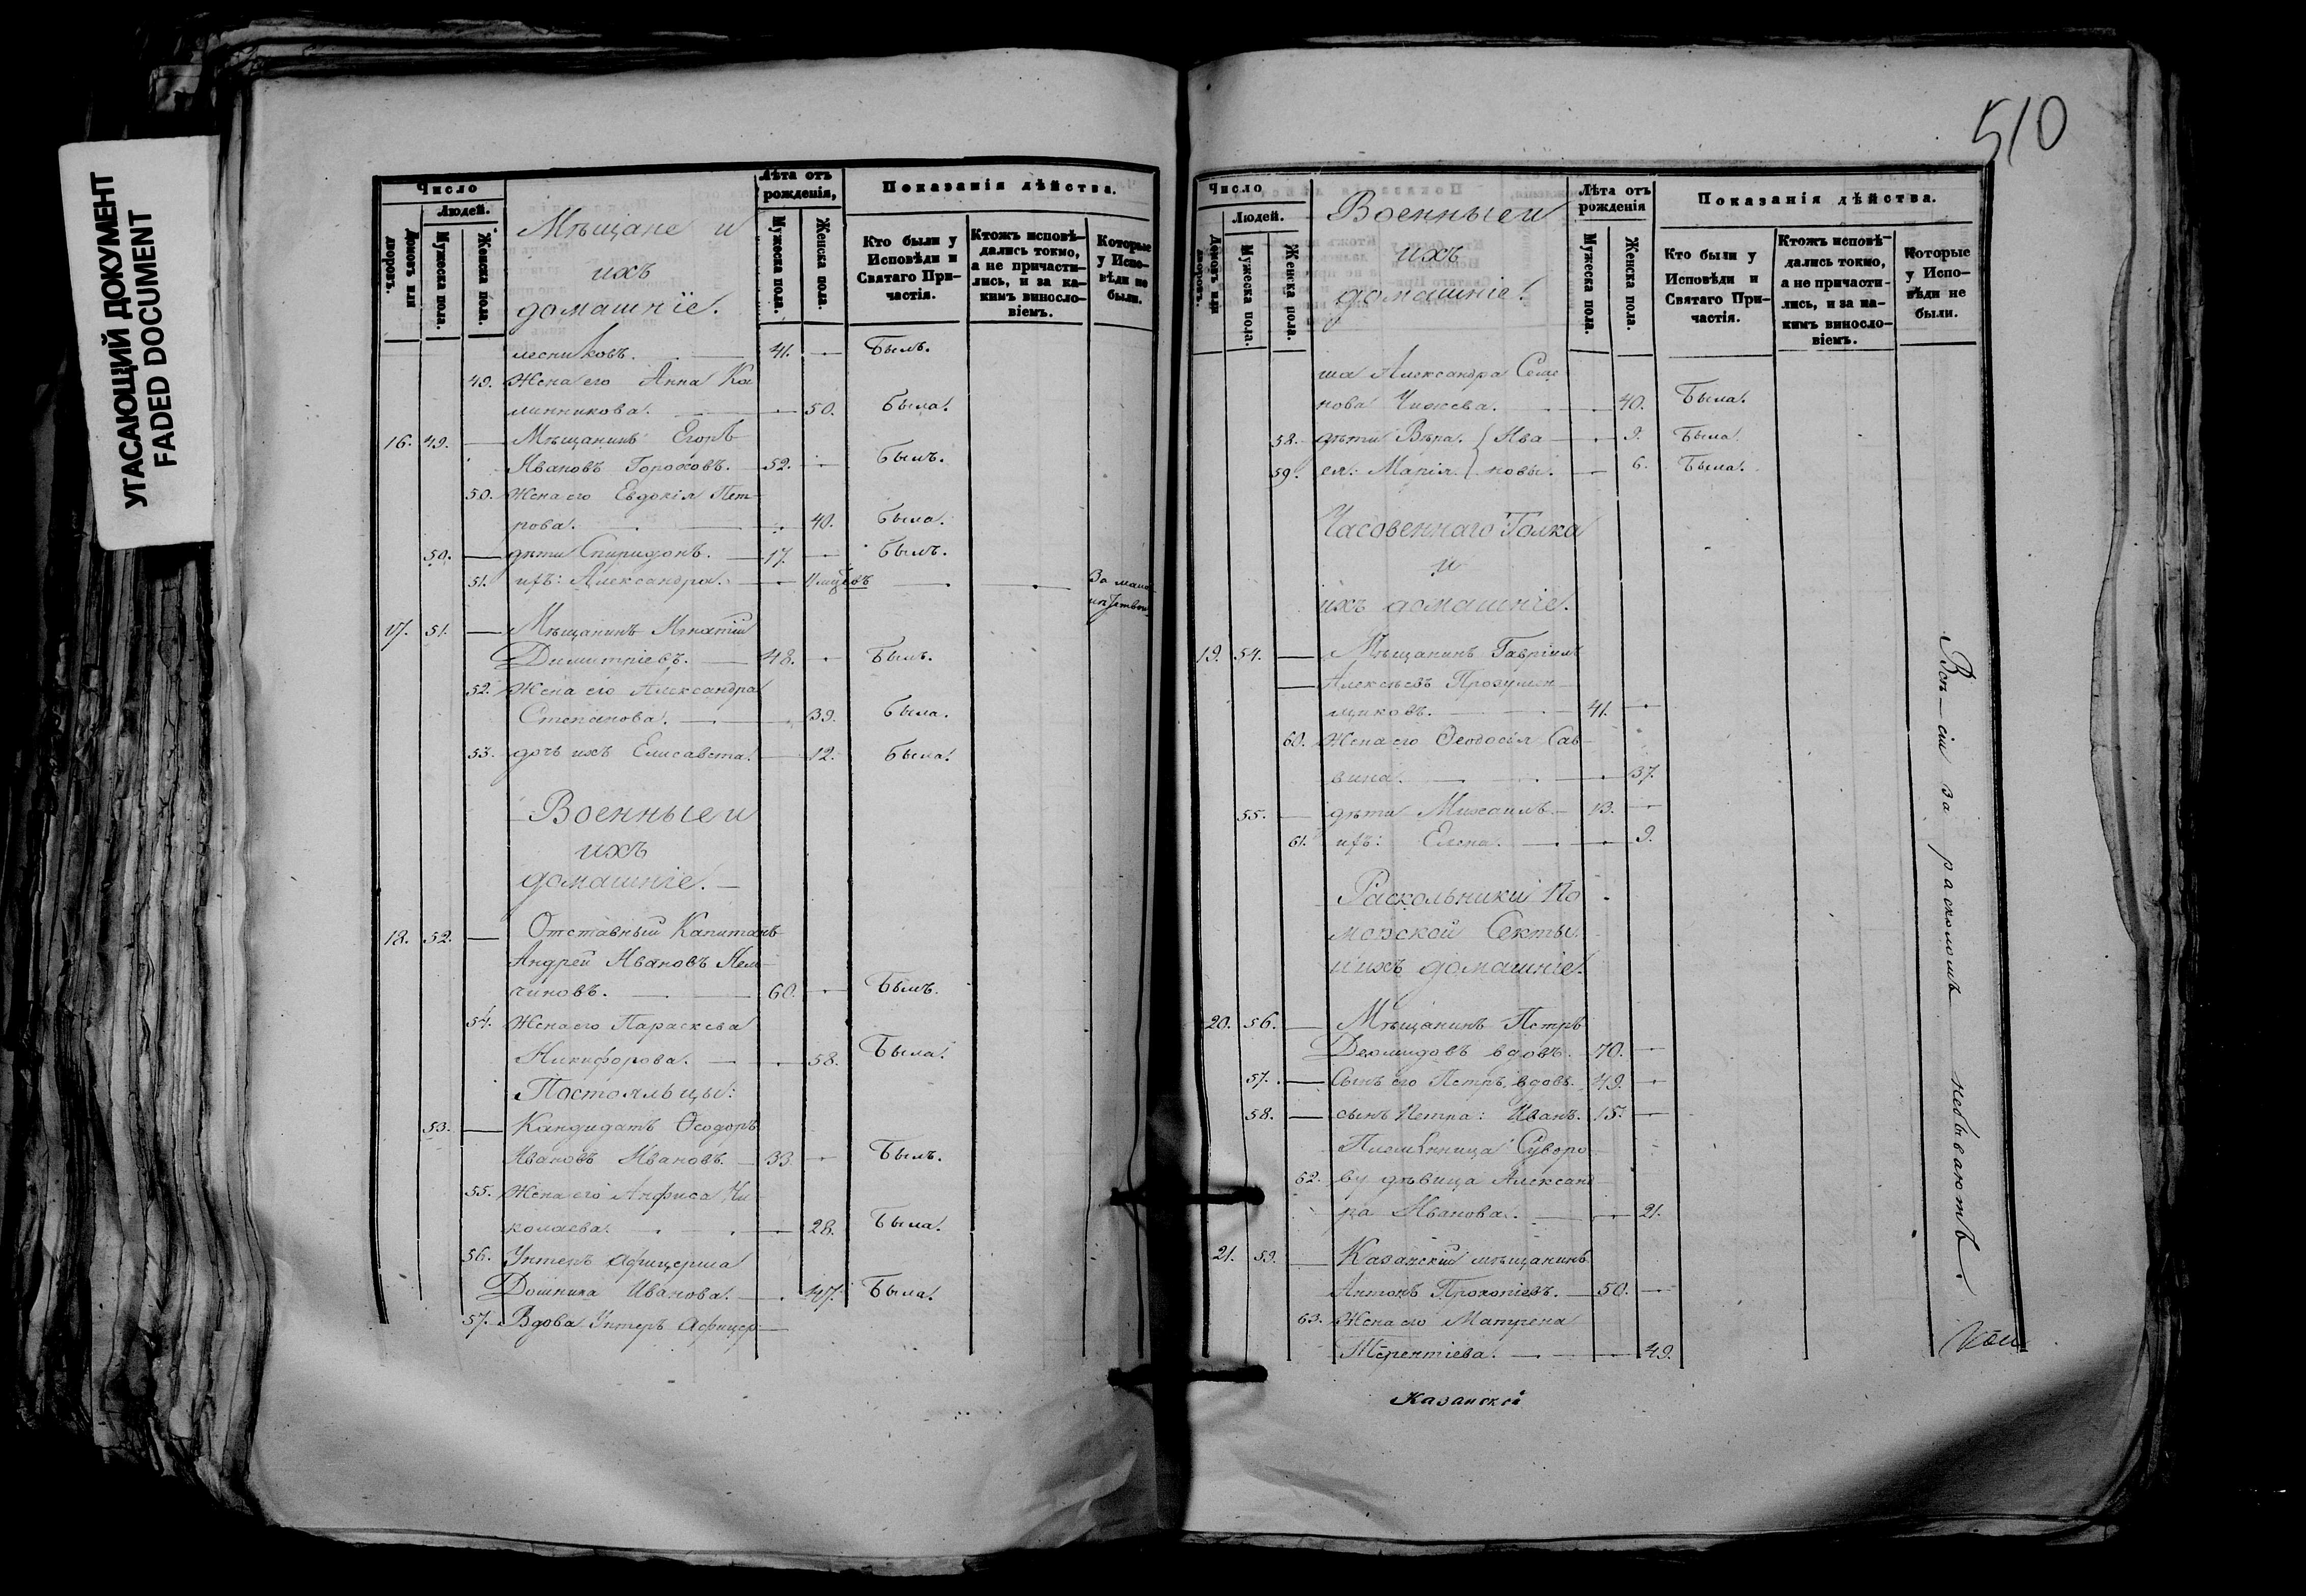 УГАСАЮЩИЙ ДОКУМЕНТ
FADED DOCUMENT
Число
Людей.
Домовъ или дворовъ.
Мужеска пола.
Женска пола.
Мѣщане и
ихъ
домашніе.
Лѣта отъ рожденія,
Мужеска пола.
Женска пола.
Показанія дѣйства.
Кто были у Исповѣди и Святаго Причастія.
Ктожъ исповѣдались токмо, а не причастились, и за какимъ винословіемъ.
Которые у Исповѣди не были.
лесниковъ. 41. — Былъ.
49. Жена его Анна Ка
линникова. — 50. Была.
16. 49. — Мѣщанинъ Егоръ
Ивановъ Гороховъ. — 52. — Былъ.
50. Жена его Евдокія Пет-
рова. — 40. Была.
50. — дѣти Спиридонъ. — 17. — Былъ.
51. ихъ: Александра. —
17. 51. — Мѣщанинъ Игнатій
Димитріевъ. — 48. — Былъ.
52. Жена его Александра
Степанова. — 39. Была.
53. дочь ихъ Елисавета. — 12. Была.
Военные и
ихъ
домашніе. —
18. 52. — Отставный Капитанъ
Андрей Ивановъ
чиновъ. — 60. — Былъ.
54. Жена его Параскева
Никифорова. — 58. Была.
Постояльцы:
53. — Кандидатъ Ѳеодоръ
Ивановъ Ивановъ. — 33. — Былъ.
55. Жена его Анфиса Ни
колаева. — 28. Была.
56. Унтеръ Афицерша
Ивановa. — 47. Была.
57. Вдова Унтеръ Афицер-
510
Число
Людей.
Домовъ или дворовъ.
Мужеска пола.
Женска пола.
Военные и
ихъ
домашніе.
Лѣта отъ рожденія
Мужеска пола.
Женска пола.
Показанія дѣйства.
Кто были у Исповѣди и Святаго Причастія.
Ктожъ исповѣдались токмо, а не причастились, и за какимъ винословіемъ.
Которые у Исповѣди не были.
ша Александра Семе
нова Чижева. — 40. Была.
58. дѣти Вѣра. } Ива — 9. Была
59. ея: Марія. } новы. — 6. Была.
Часовеннаго Толка
и
ихъ домашніе.
19. 54. — Мѣщанинъ Гавріилъ
— Алексѣевъ Прозумен-
щиковъ. — 41. —
60. Жена его Ѳеодосія Сав-
вина. — 37.
55. — дѣти Михаилъ. — 13. —
61. ихъ: Елена. — 9.
Раскольники По
морской Секты
и ихъ домашніе.
20. 56. — Мѣщанинъ Петръ
Деомидовъ вдовъ. 70. —
57. — Сынъ его Петръ, вдовъ. 49. —
58. — сынъ Петра: Иванъ. 15. —
Племянница Суворо
62. ву дѣвица Александ-
ра Иванова. — 21.
21. 59. — Казанскій мѣщанинъ
Антонъ Прокопіевъ. — 50. —
63. Жена его Матрена
Терентіева. — 49.
Всѣ сіи за расколомъ небываютъ.
Казанскій